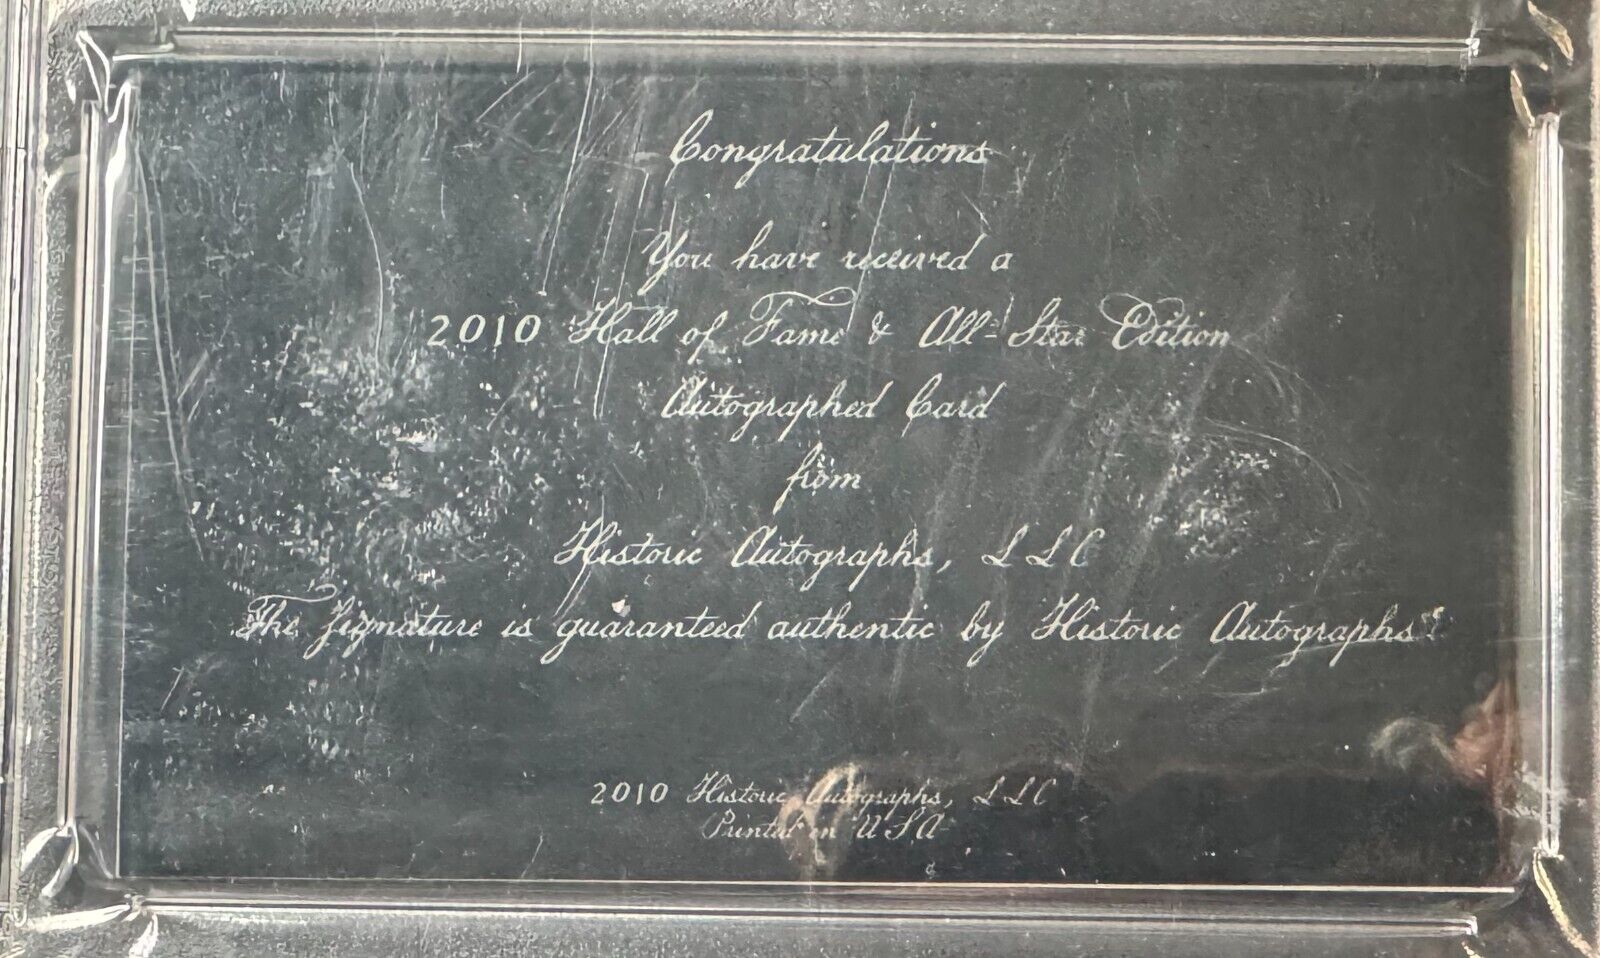 Congratulations
You have received a
2010 Hall of Fame & All-Star Edition
Autographed Card
from
Historic Autographs, LLC
The Signature is guaranteed authentic by Historic Autographs
2010 Historic Autographs, LLC
Printed in USA